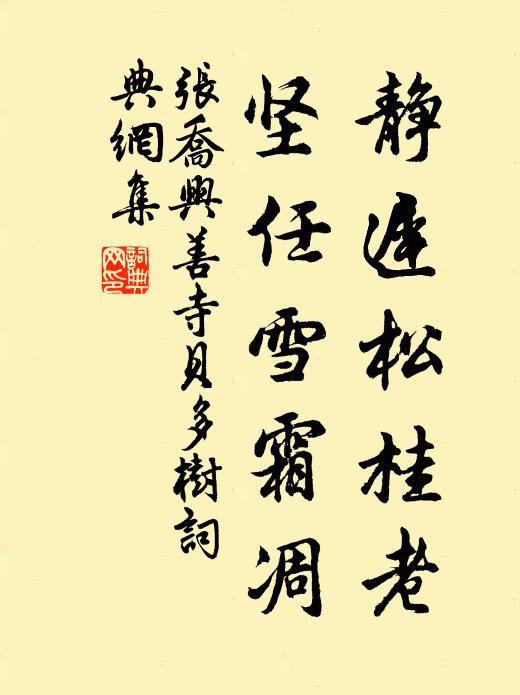 静遅松桂老
坚任雪霜凋
張喬興善寺貝多樹詞
典網集
詞典
网印